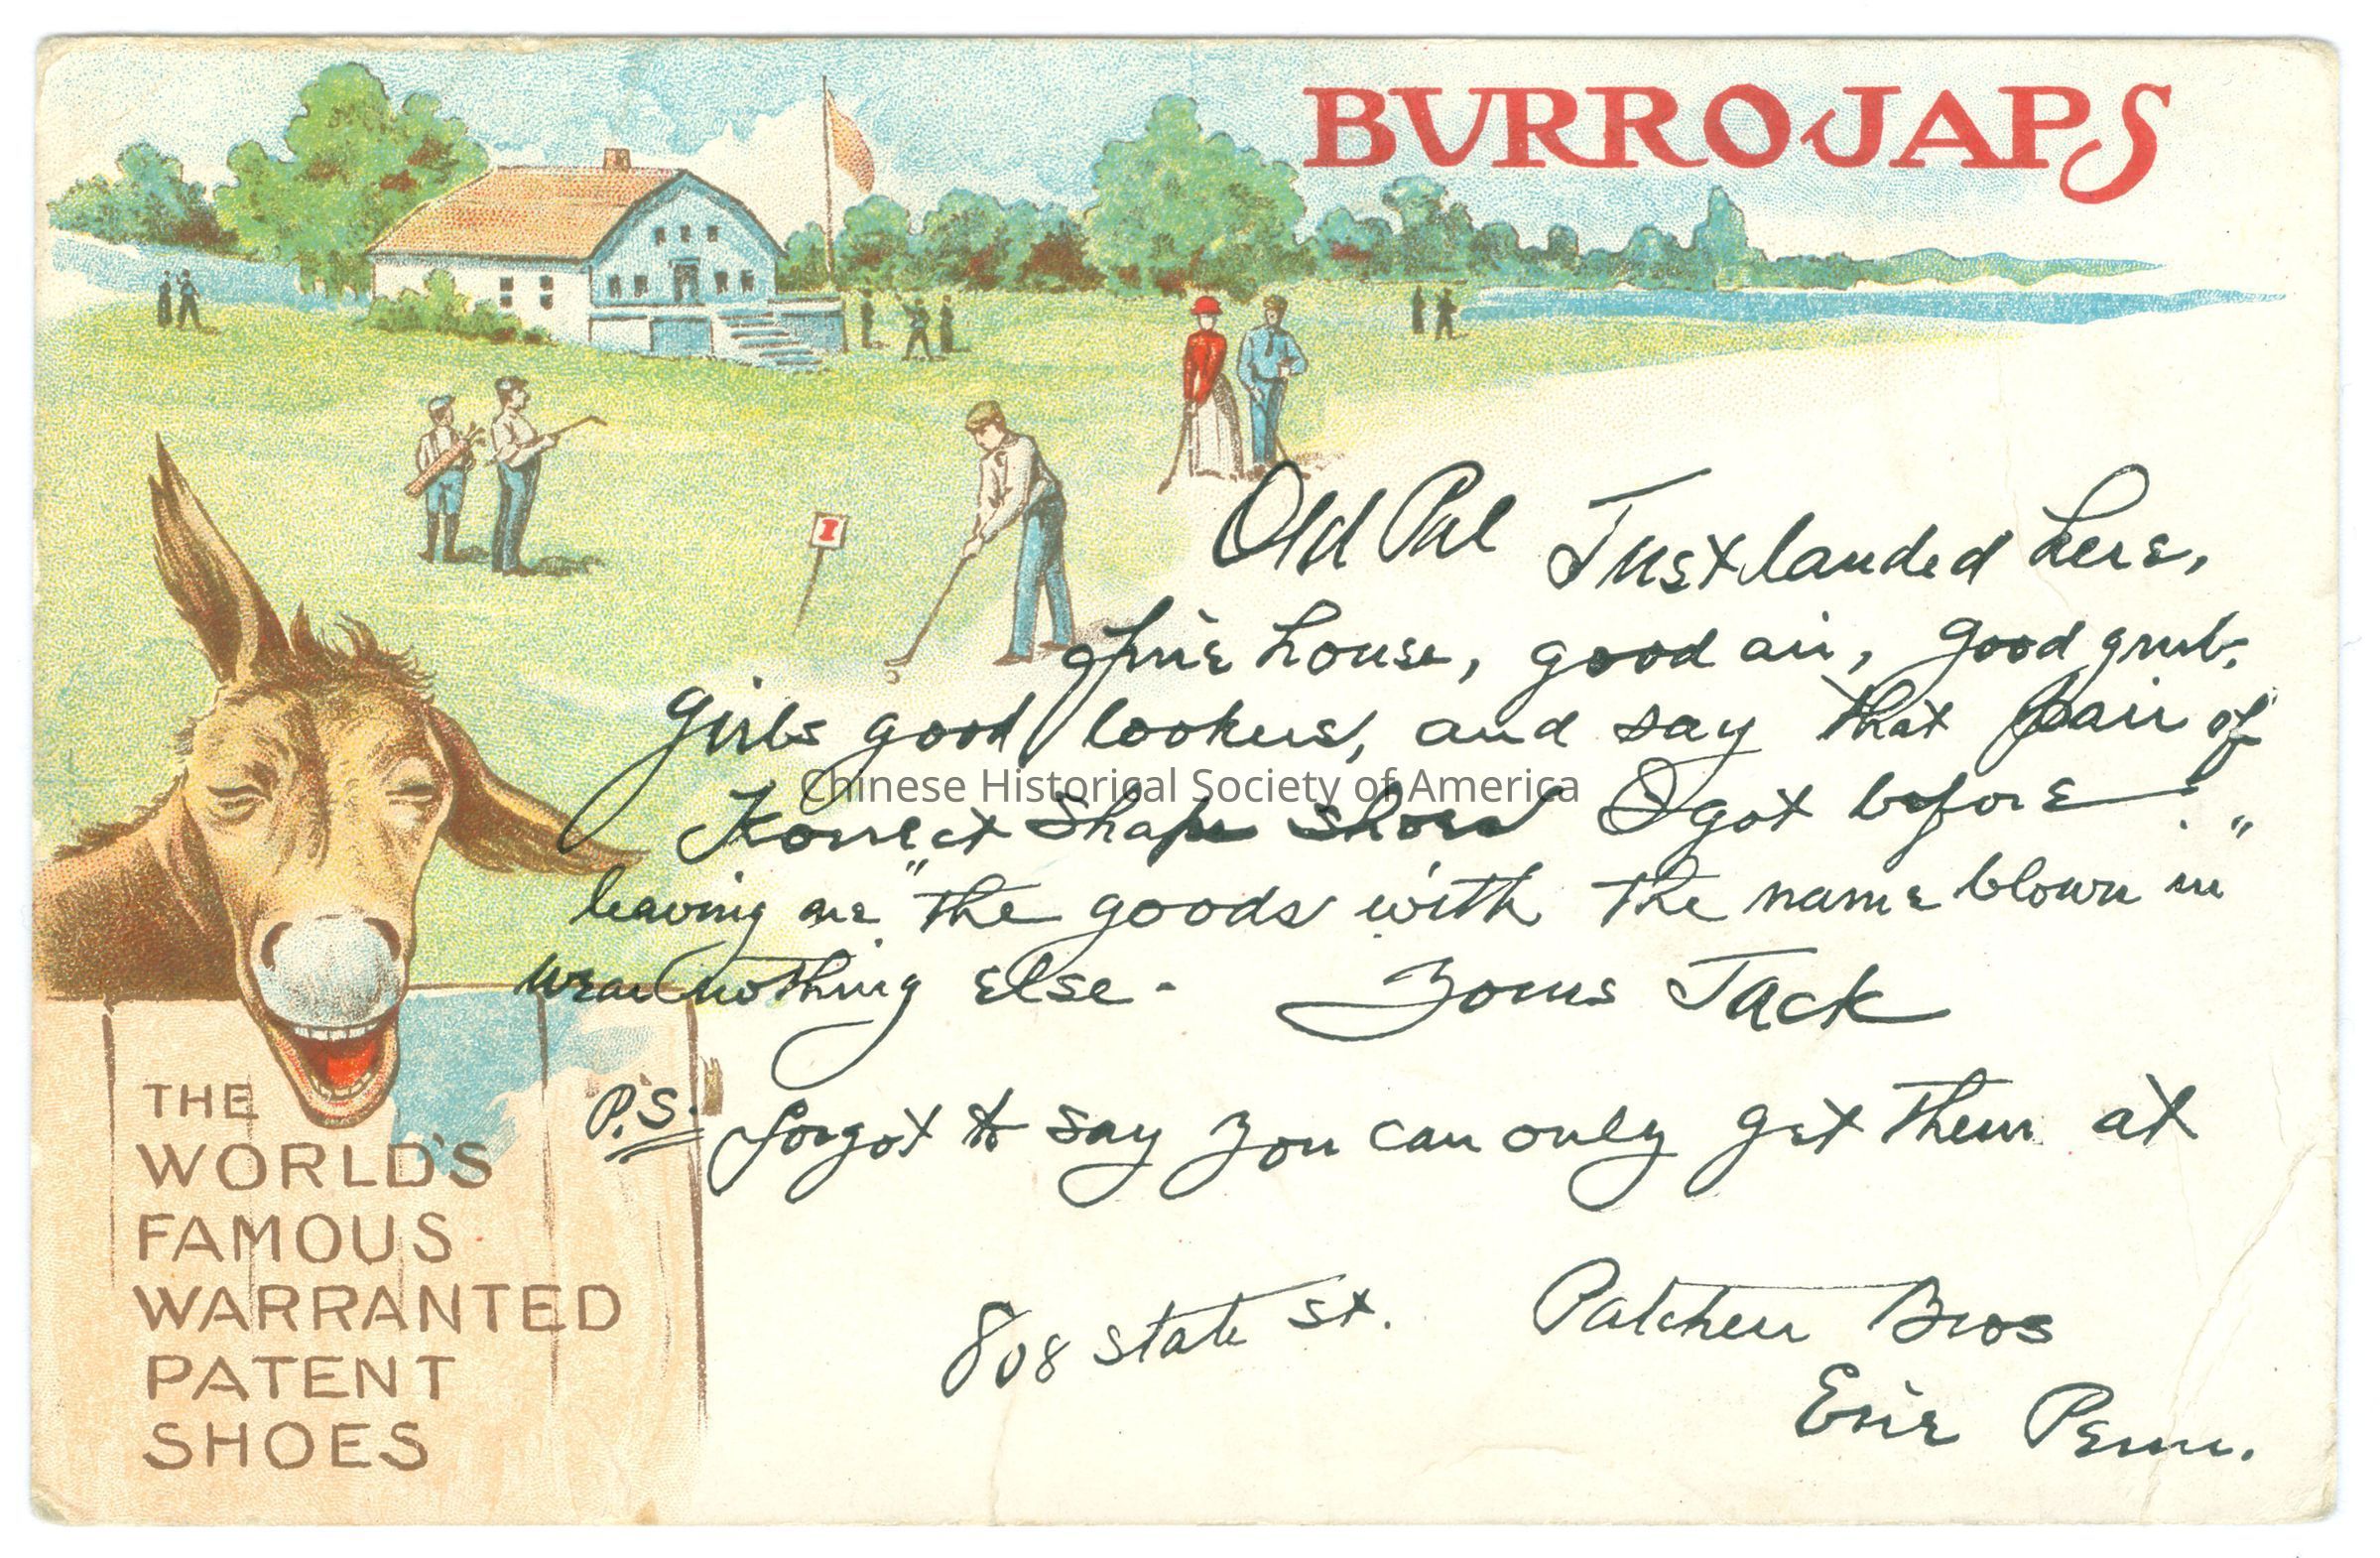 BURROJAPS
1
Old Pal Just landed here,
fine house, good air, good grub,
girls good lookers, and say that pair of
Chinese Historical Society of America
Korrect Shape Shoes I got before
leaving are "the goods with the name blown in"
wear nothing else. Yours Jack
P.S. forgot to say you can only get them at
808 State St. Patchen Bros
Erie Penn.
THE
WORLD'S
FAMOUS
WARRANTED
PATENT
SHOES